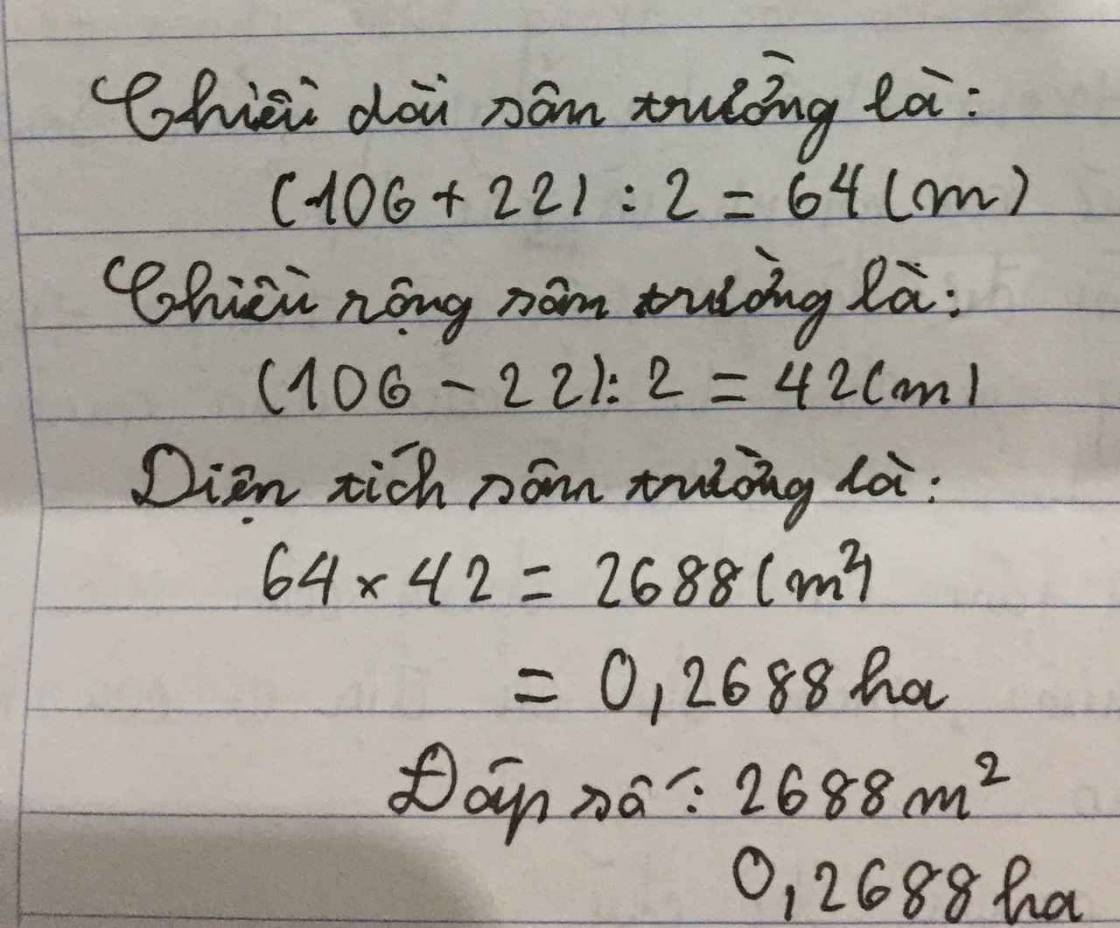 Chiều dài sân trường là:
(106 + 22) : 2 = 64 (m)
Chiều rộng sân trường là:
(106 - 22) : 2 = 42 (m)
Diện tích sân trường là:
64 × 42 = 2688 (m²)
= 0,2688 ha
Đáp số : 2688 m²
0,2688 ha